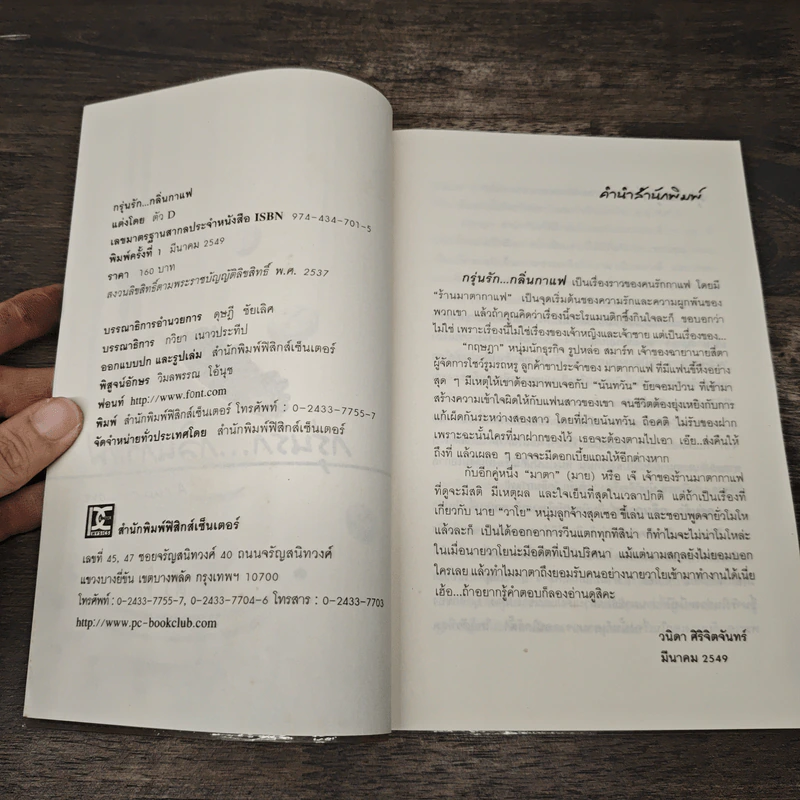 กรุ่นรัก...กลิ่นกาแฟ
แต่งโดย ตัว D
เลขมาตรฐานสากลประจำหนังสือ ISBN 974-434-701-5
พิมพ์ครั้งที่ 1 มีนาคม 2549
ราคา 160 บาท
สงวนลิขสิทธิ์ตามพระราชบัญญัติลิขสิทธิ์ พ.ศ. 2537
บรรณาธิการอำนวยการ ดุษฎี ชัยเลิศ
บรรณาธิการ กวิยา เนาวประทีป
ออกแบบปก และรูปเล่ม สำนักพิมพ์ฟิสิกส์เซ็นเตอร์
พิสูจน์อักษร วิมลพรรณ โอ้นุช
ฟอนท์ http://www.font.com
พิมพ์ สำนักพิมพ์ฟิสิกส์เซ็นเตอร์ โทรศัพท์ : 0-2433-7755-7
จัดจำหน่ายทั่วประเทศโดย สำนักพิมพ์ฟิสิกส์เซ็นเตอร์
สำนักพิมพ์ฟิสิกส์เซ็นเตอร์
เลขที่ 45, 47 ซอยจรัญสนิทวงศ์ 40 ถนนจรัญสนิทวงศ์
แขวงบางยี่ขัน เขตบางพลัด กรุงเทพฯ 10700
โทรศัพท์ : 0-2433-7755-7, 0-2433-7704-6 โทรสาร : 0-2433-7703
http://www.pc-bookclub.com
คำนำสำนักพิมพ์
กรุ่นรัก...กลิ่นกาแฟ เป็นเรื่องราวของคนรักกาแฟ โดยมี
"ร้านมาตากาแฟ" เป็นจุดเริ่มต้นของความรักและความผูกพันของ
พวกเขา แล้วถ้าคุณคิดว่าเรื่องนี้จะโรแมนติกซึ้งกินใจละก็ ขอบอกว่า
ไม่ใช่ เพราะเรื่องนี้ไม่ใช่เรื่องของเจ้าหญิงและเจ้าชาย แต่เป็นเรื่องของ...
"กฤษฎา" หนุ่มนักธุรกิจ รูปหล่อ สมาร์ท เจ้าของฉายานายสี่ตา
ผู้จัดการโชว์รูมรถหรู ลูกค้าขาประจำของ มาตากาแฟ ที่มีแฟนขี้หึงอย่าง
สุด ๆ มีเหตุให้เขาต้องมาพบเจอกับ "นันทวัน" ยัยจอมป่วน ที่เข้ามา
สร้างความเข้าใจผิดให้กับแฟนสาวของเขา จนชีวิตต้องยุ่งเหยิงกับการ
แก้เผ็ดกันระหว่างสองสาว โดยที่ฝ่ายนันทวัน ถือคติ ไม่รับของฝาก
เพราะฉะนั้นใครที่มาฝากของไว้ เธอจะต้องตามไปเอา เอ๊ย...ส่งคืนให้
ถึงที่ แล้วเผลอ ๆ อาจจะมีดอกเบี้ยแถมให้อีกต่างหาก
กับอีกคู่หนึ่ง "มาตา" (มาย) หรือ เจ๊ เจ้าของร้านมาตากาแฟ
ที่ดูจะมีสติ มีเหตุผล และใจเย็นที่สุดในเวลาปกติ แต่ถ้าเป็นเรื่องที่
เกี่ยวกับ นาย "วาโย" หนุ่มลูกจ้างสุดเซอ ขี้เล่น และชอบพูดจายั่วโมโห
แล้วละก็ เป็นได้ออกอาการวีนแตกทุกทีสิน่า ก็ทำไมจะไม่น่าโมโหล่ะ
ในเมื่อนายวาโยน่ะมีอดีตที่เป็นปริศนา แม้แต่นามสกุลยังไม่ยอมบอก
ใครเลย แล้วทำไมมาตาถึงยอมรับคนอย่างนายวาโยเข้ามาทำงานได้เนี่ย
เฮ้อ...ถ้าอยากรู้คำตอบก็ลองอ่านดูสิคะ
วนิดา ศิริจิตจันทร์
มีนาคม 2549